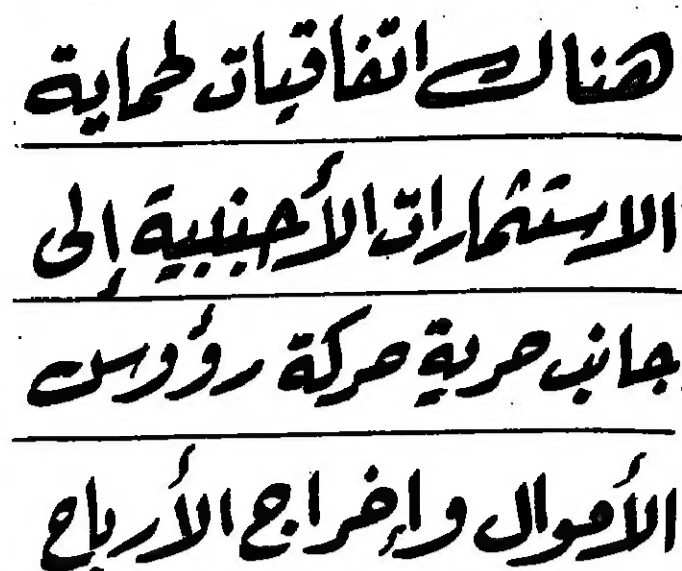 هناك اتفاقيات لحماية
الاستثمارات الأجنبية إلى
جانب حرية حركة رؤوس
الأموال وإخراج الأرباح